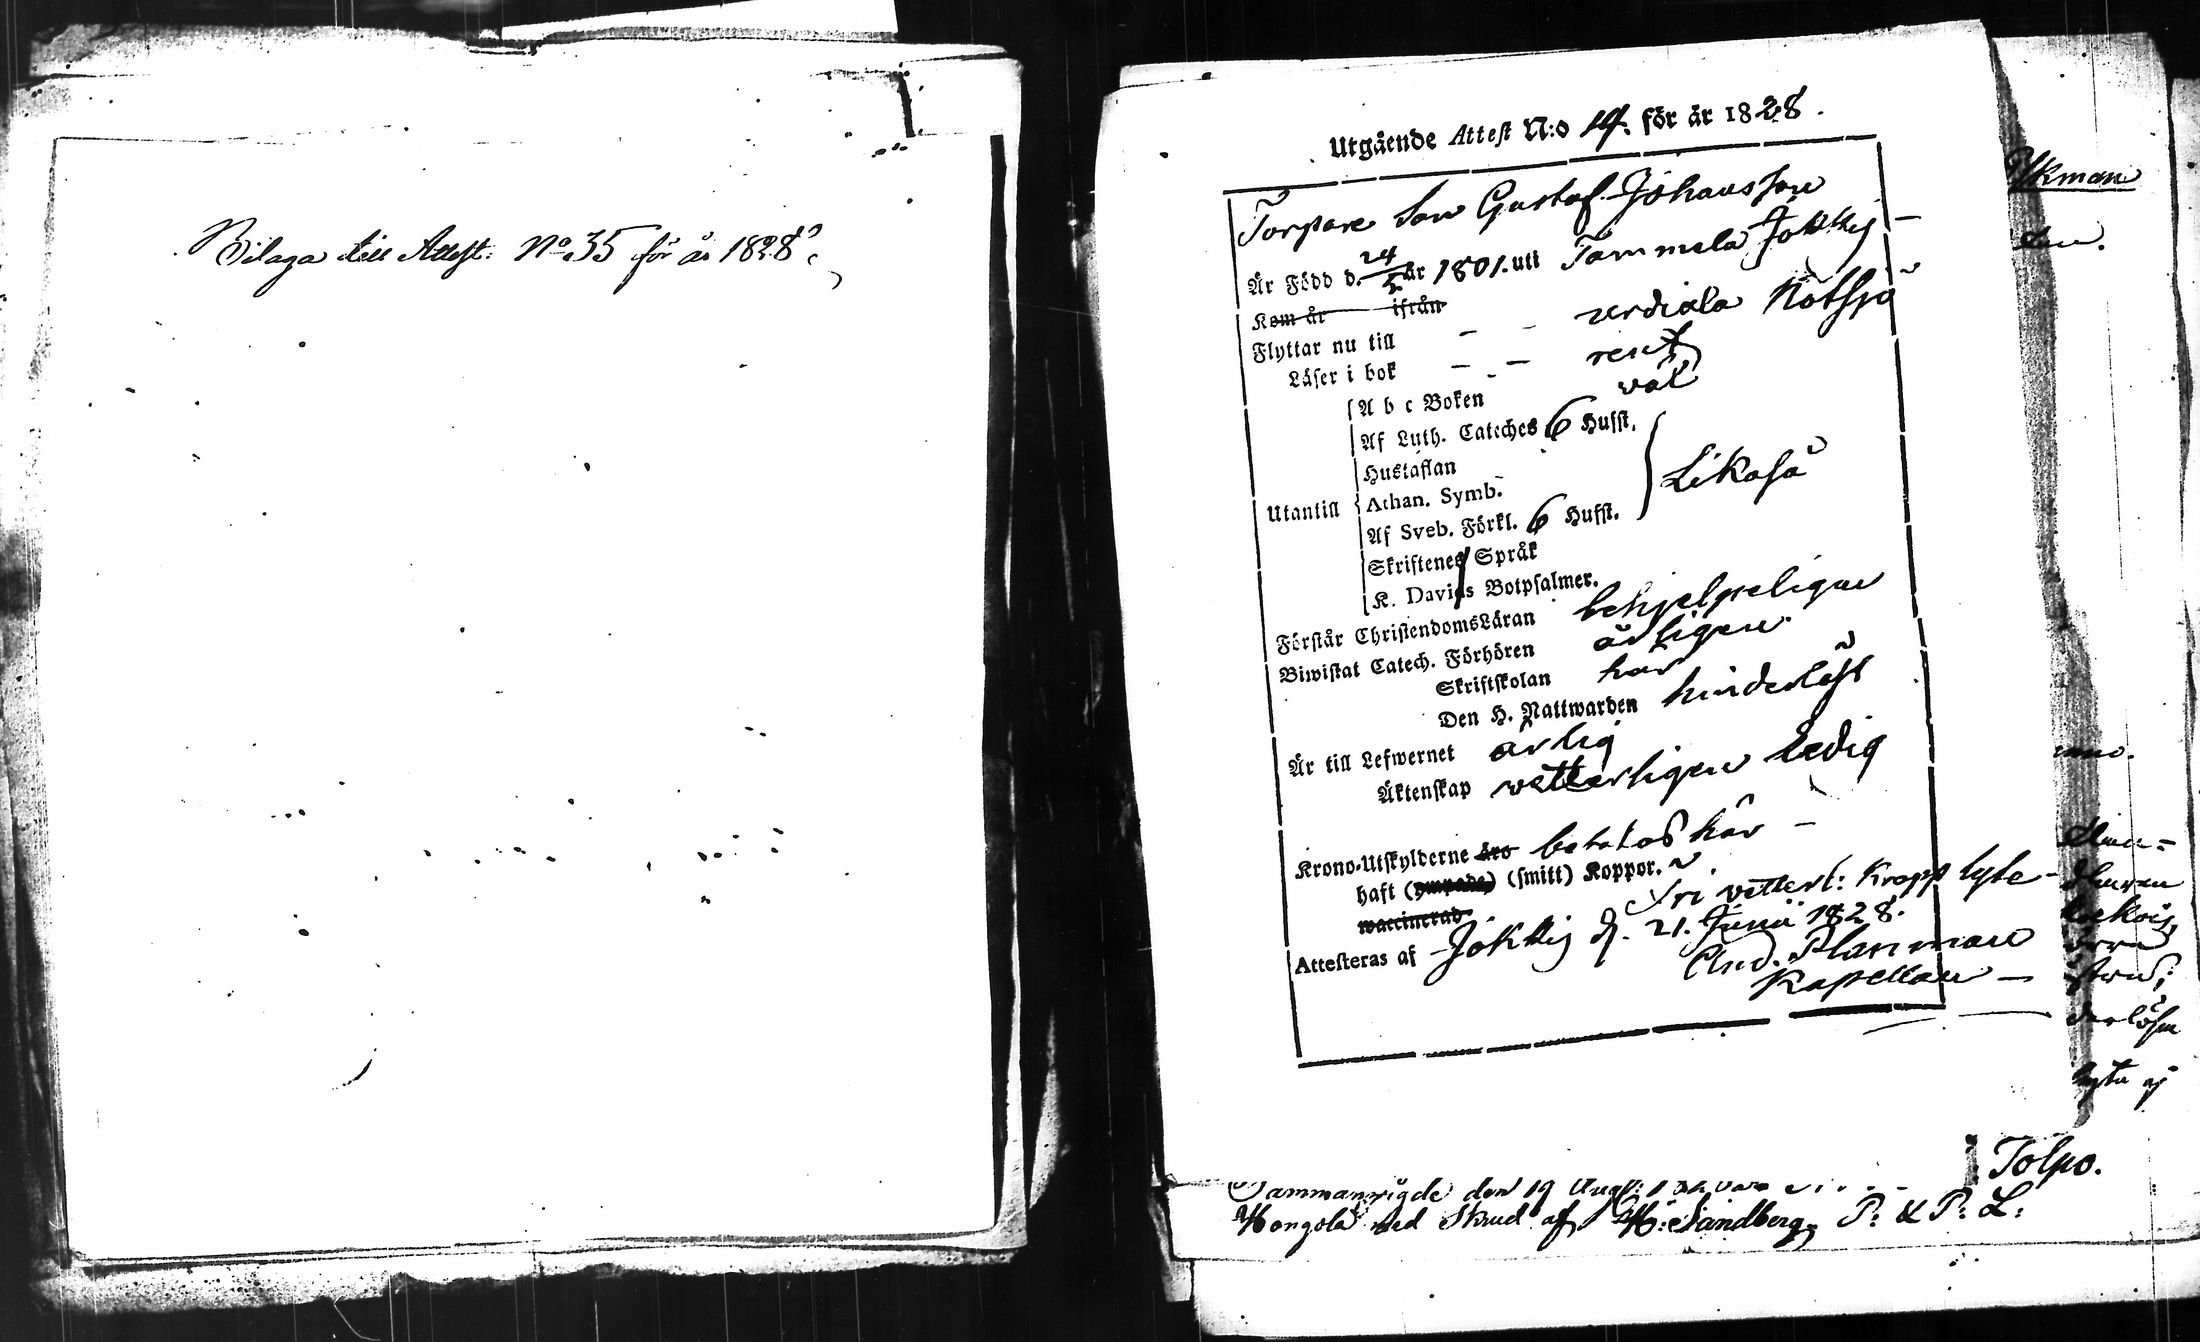 Bilaga till Attest. No 35 för år 1828.
Utgående Attest N:o 14. för år 1828.
Torpare Son Gustaf Johansson
Är Född d. 24/5 år 1801. uti Tammela Jokkis –
Kom år ifrån
Flyttar nu till – – urdiala Nötsjö
Läser i bok – – rent
A b c Boken väl
Af Luth. Cateches 6 Hufst.
Hustaflan
Utantill Athan. Symb. Likaså
Af Sveb. Förkl. 6 Hufst.
Skriftenes Språk
K. Davids Botpsalmer.
Förstår ChristendomsLäran behjelpeligen
Biwistat Catech. Förhören årligen
Skriftskolan har
Den H. Nattwarden hinderlöst
Är till Lefwernet ärlig
Äktenskap vetterligen Ledig
Krono-Utskylderne äro betalos här –
haft (ympade) (smitt) Koppor.
waccinerad. fri vetterl: Kropps lyte –
Attesteras af Jokkis d. 21. Junii 1828.
And. Planman
Kapellan –
Ekman
derlöst
lyte ej
Tolpo.
Sammanvigde den 19 Aug:
Hongola med Skrud af H: Sandberg P: & P: L: